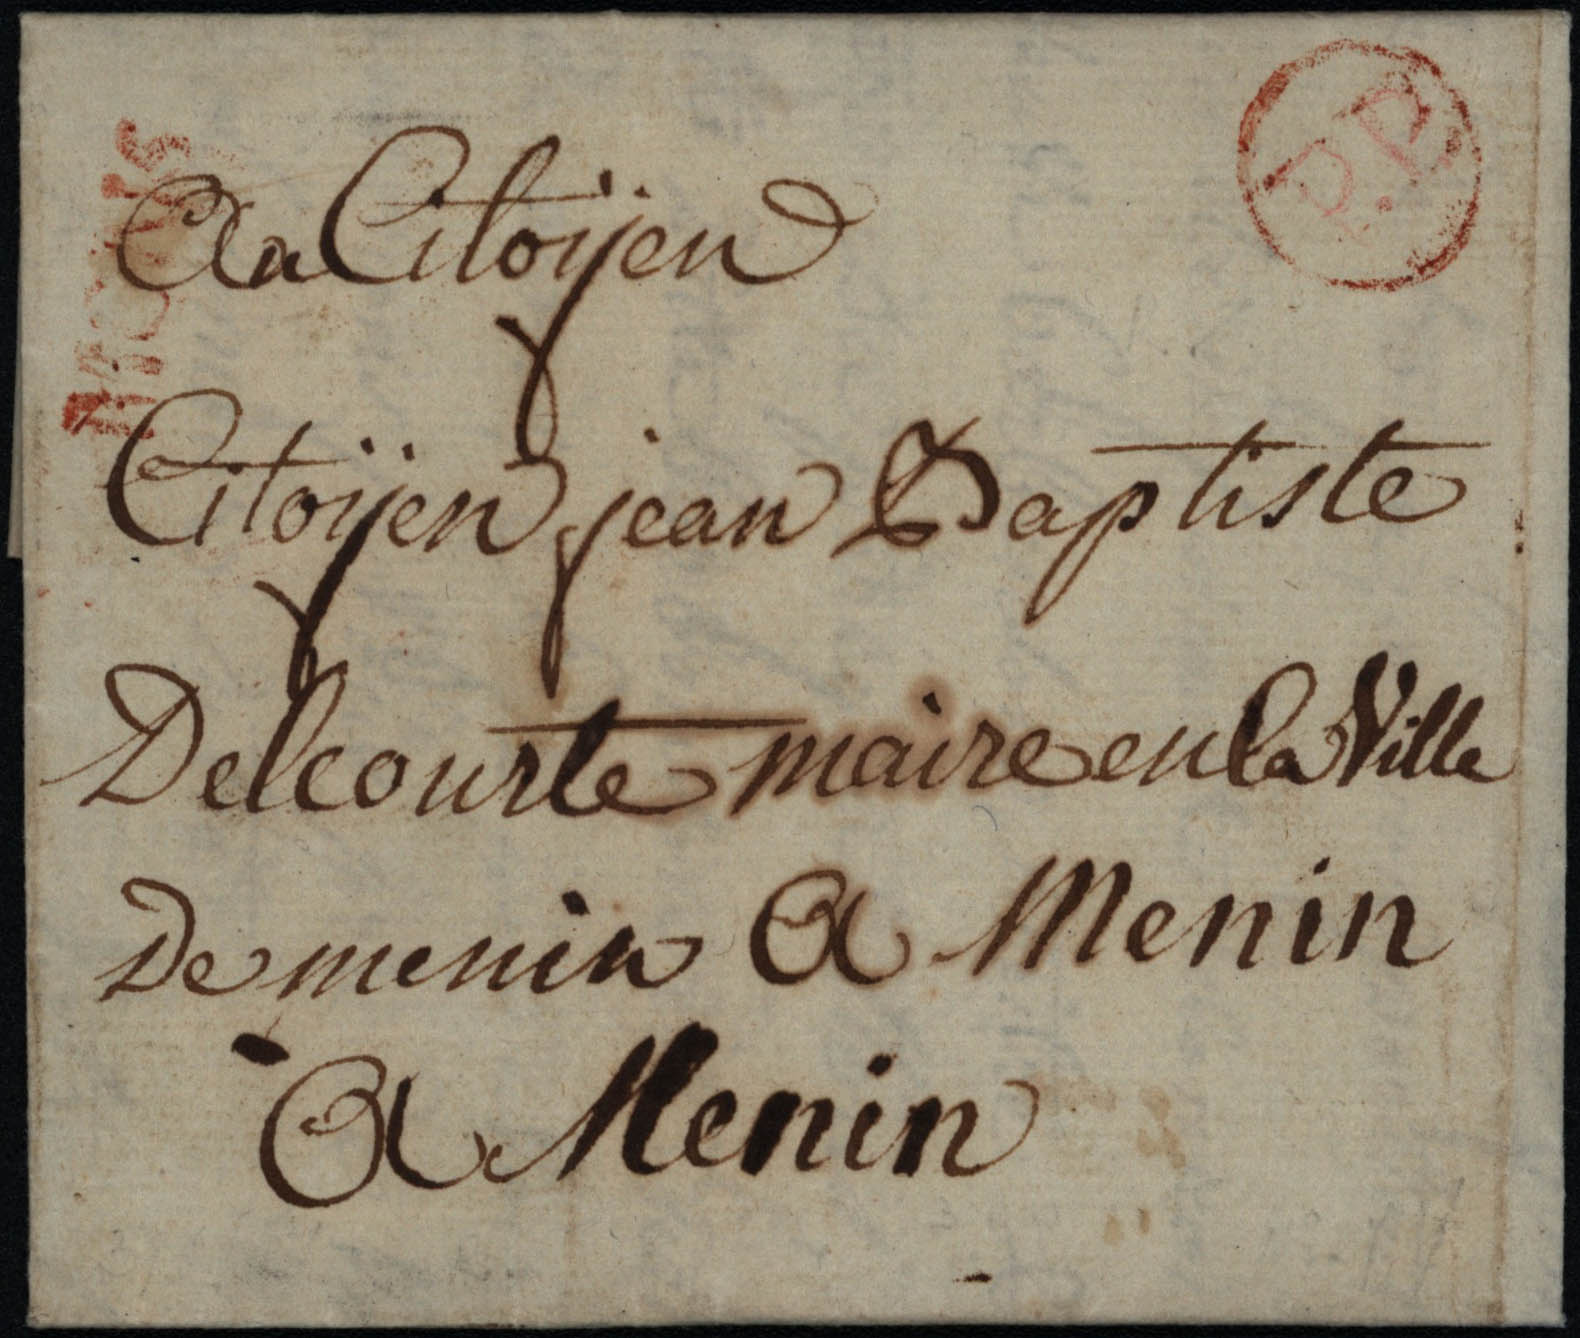 Au Citoÿen
Citoÿen jean Baptiste
Delcourte maire en la Ville
De menin A Menin
A Menin
P.P.